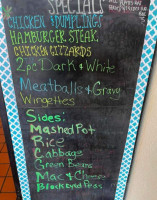 SPECIALS
CHICKEN & DUMPLINGS
HAMBURGER STEAK
CHICKEN GIZZARDS
2pc Dark & White
Meatballs & Gravy
Wingettes
Sides:
Mashed Pot
Rice
Cabbage
Green Beans
Mac & Cheese
Black Eyed Peas